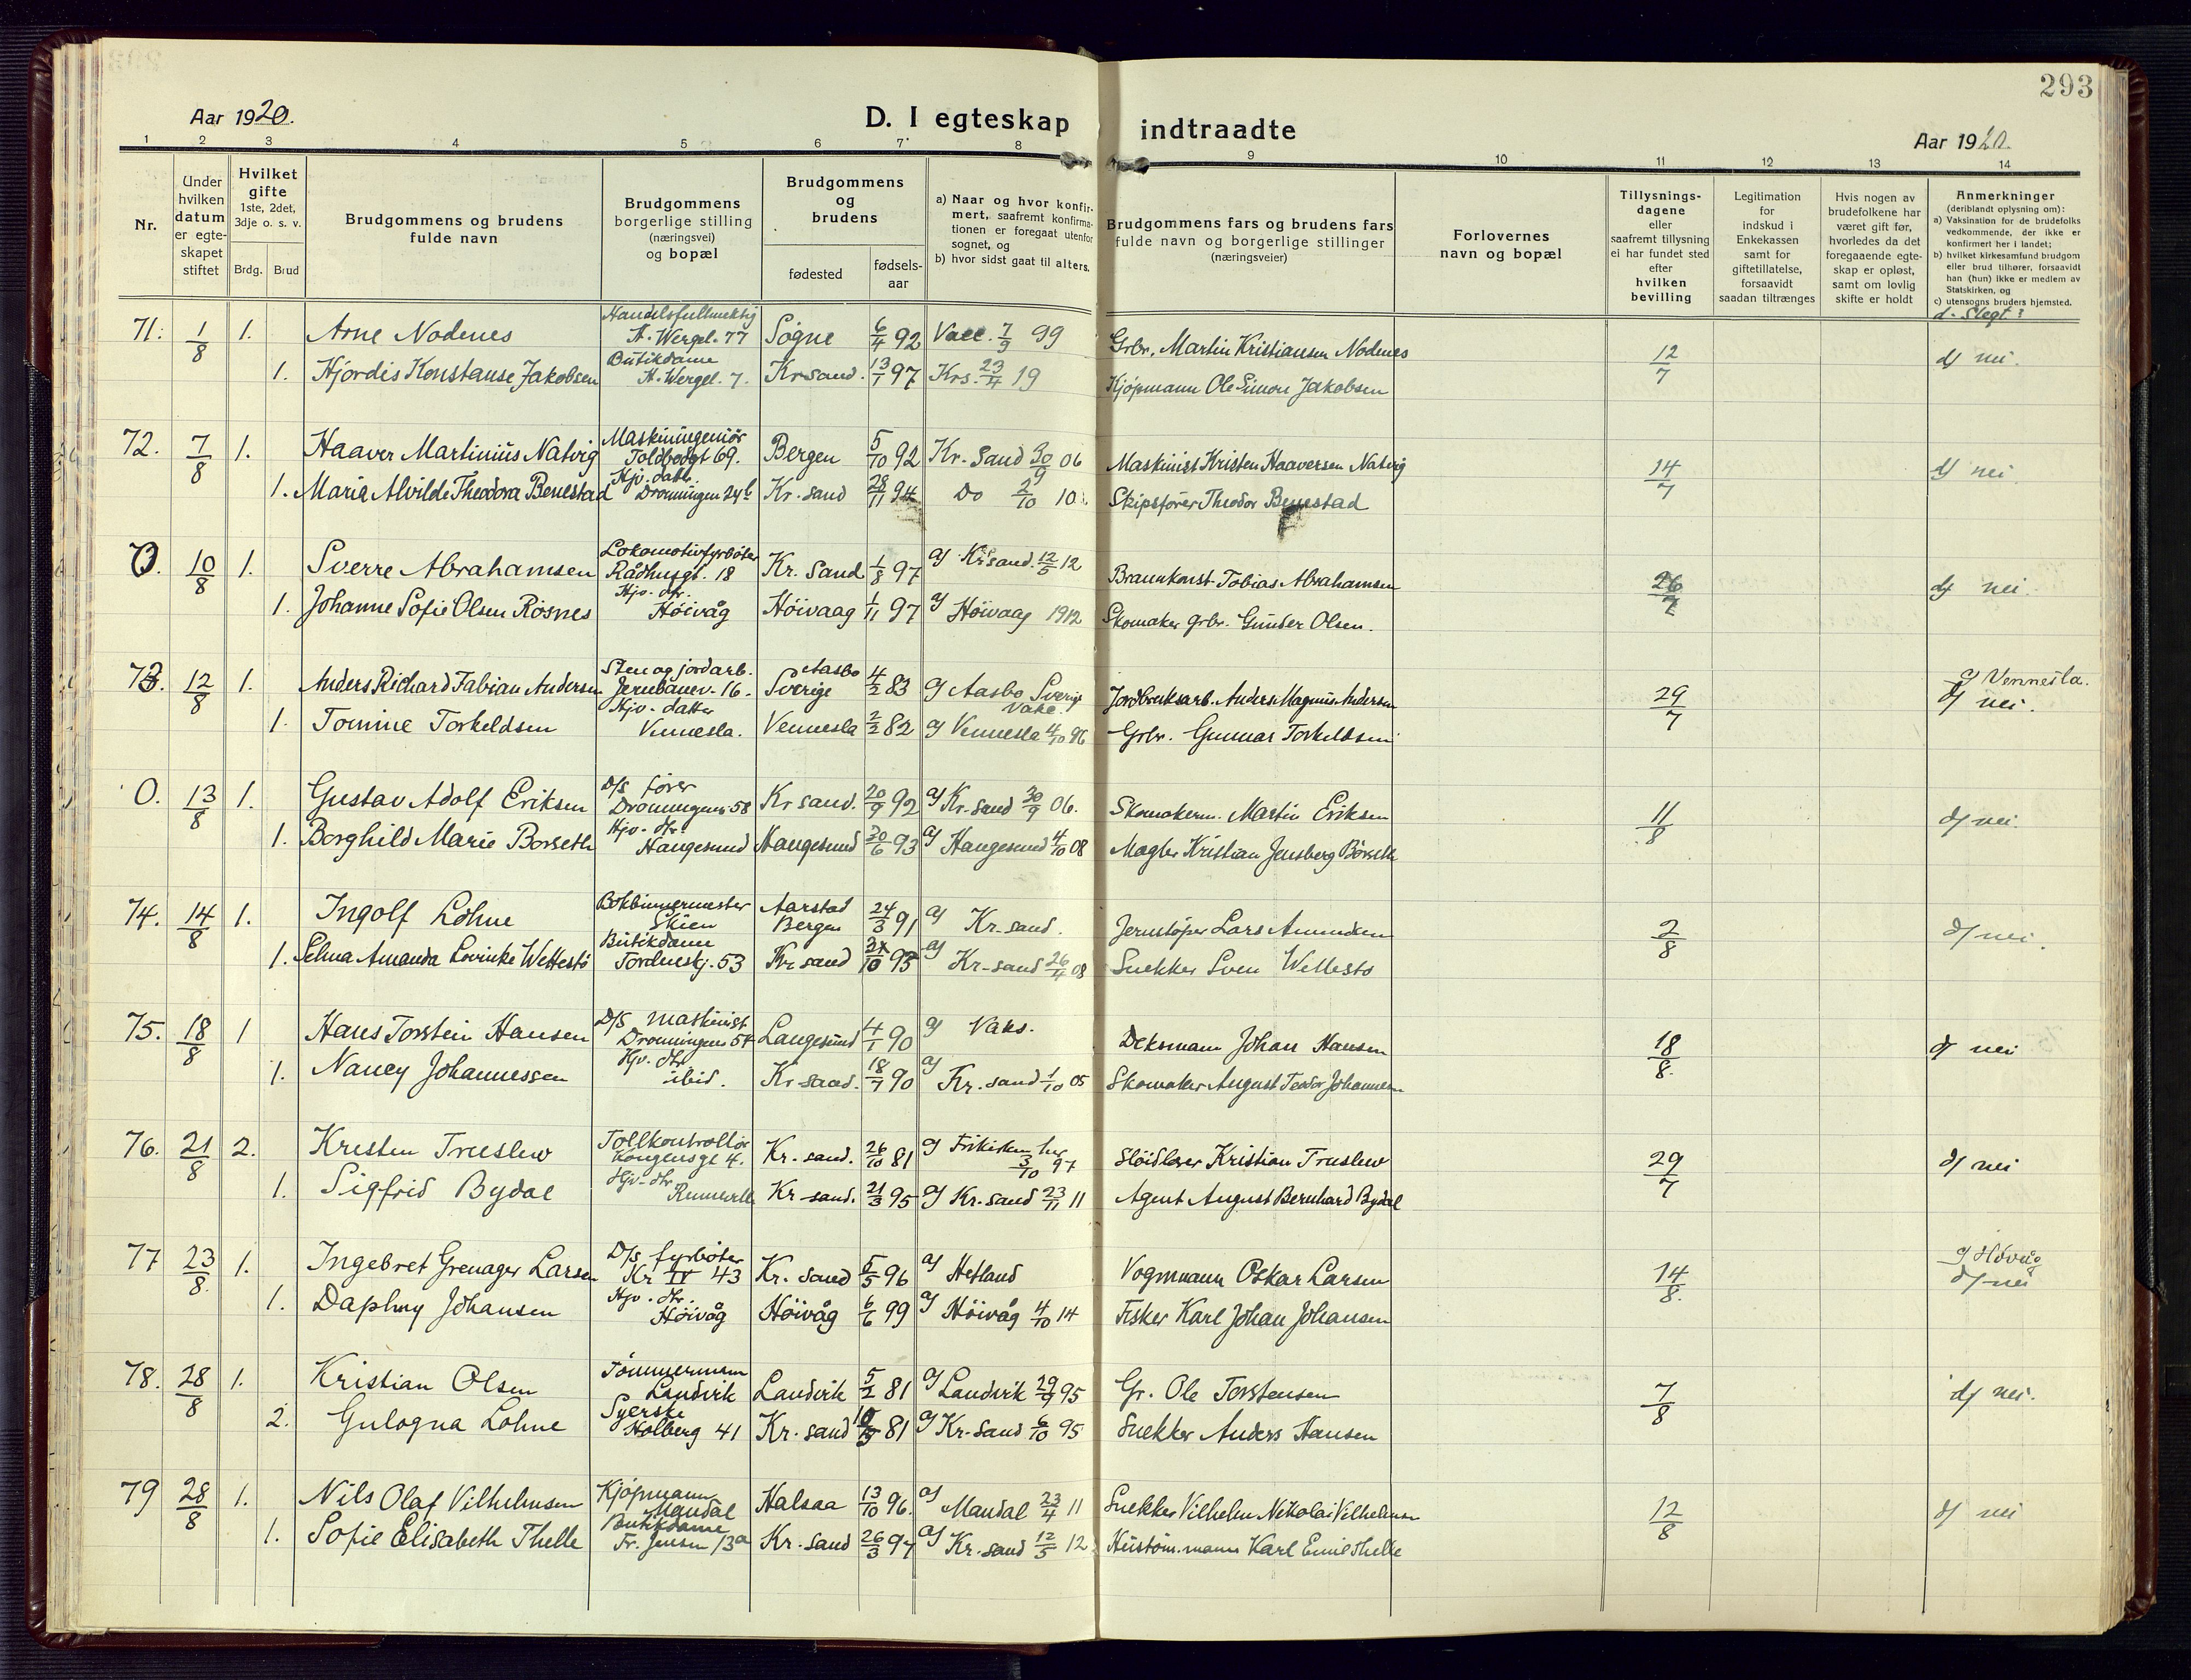 293
Aar 1920.
D. I egteskap indtraadte
Aar 1920.
1 2 3 4 5 6 7 8 9 10 11 12 13 14
Nr.
Under hvilken datum er egte-skapet stiftet
Hvilket gifte 1ste, 2det, 3dje o. s. v.
Brdg. Brud
Brudgommens og brudens fulde navn
Brudgommens borgerlige stilling (næringsvei) og bopæl
Brudgommens og brudens
fødested
fødsels-aar
a) Naar og hvor konfir-mert, saafremt konfirma-tionen er foregaat utenfor sognet, og
b) hvor sidst gaat til alters.
Brudgommens fars og brudens fars fulde navn og borgerlige stillinger (næringsveier)
Forlovernes navn og bopæl
Tillysnings-dagene eller saafremt tillysning ei har fundet sted efter hvilken bevilling
Legitimation for indskud i Enkekassen samt for giftetillatelse, forsaavidt saadan tiltrænges
Hvis nogen av brudefolkene har været gift før, hvorledes da det foregaaende egte-skap er opløst, samt om lovlig skifte er holdt
Anmerkninger (deriblandt oplysning om):
a) Vaksination for de brudefolks vedkommende, der ikke er konfirmert her i landet;
b) hvilket kirkesamfund brudgom eller brud tilhører, forsaavidt han (hun) ikke er medlem av Statskirken, og
c) utensogns bruders hjemsted.
d. Slegt?
71. 1/8 1. Arne Nodenes Handelsfullmektig H. Wergel. 77 Søgne 6/4 92 Vacc. 7/9 99 Grbr. Martin Kristiansen Nodenes 12/7 d) nei.
1. Hjørdis Konstanse Jakobsen Butikdame H. Wergel. 7. Krsand. 13/1 97 Krs. 23/4 19 Kjøpmann Ole Simon Jakobsen
72. 7/8 1. Haaver Martinius Natvig Maskiningeniør Toldbodgt 69. Bergen 5/10 92 Kr. Sand 30/9 06 Maskinist Kristen Haaversen Natvig 14/7 d) nei.
1. Maria Alvilde Theodora Benestad Hjv. datter Dronningen 24 b Kr. sand 28/11 94 Do 2/10 10. Skipsfører Theodor Benestad
0. 10/8 1. Sverre Abrahamsen Lokomotivfyrbøter Rådhusgt. 18 Kr. Sand 1/8 97 a) Krsand. 12/5 12 Braunkonst. Tobias Abrahamsen 26/7 d) nei.
1. Johanne Sofie Olsen Røsnes Hjv. dtr. Høivåg Høivaag 1/11 97 a) Høivaag 1912 Skomaker grbr. Gunder Olsen.
73. 12/8 1. Anders Richard Fabian Andersen Sten og jordarb. Jernbanev. 16. Aasbo Sverige 4/2 83 a) Aasbo Sverige Vake. Jordbruksarb. Anders Magnus Andersen 29/7 c) Vennesla. d) nei.
1. Tomine Torkeldsen Hjv. datter Vennesla. Vennesla 2/2 82 a) Vennesla 4/10 96 Grbr. Gunnar Torkeldsen
0. 13/8 1. Gustav Adolf Eriksen D/s fører Dronningens 58 Kr sand. 20/9 92 a) Kr. sand 30/9 06. Skomakerm. Martin Eriksen 11/8 d) nei.
1. Borghild Marie Borseth Hjv. dtr. Haugesund Haugesund 30/6 93 a) Haugesund 4/10 08 Mægler Kristian Jensberg Børseth
74. 14/8 1. Ingolf Lohne Bokbinnermester Skien Aarstad Bergen 24/3 91 a) Kr. sand. Jernstøper Lars Amundsen 2/8 d) nei.
1. Selma Amanda Lovinke Wettestø Butikdame Tordenskj. 53 Kr. sand 31/10 93 a) Kr. sand 26/4 08 Snekker Sven Wettestø
75. 18/8 1 Hans Torstein Hansen D/S maskinist Dronningens 54 Langesund 4/1 90 a) Vaks. Deksmann Johan Hansen 18/8. d) nei
1. Nancy Johannessen Hjv. dtr. ibid. Kr sand. 18/7 90 a) Kr. sand 1/10 05 Skomaker August Teodor Johannessen
76. 21/8 2. Kristen Truslew Tollkontrollør Kongensgt 4. Kr. sand. 26/10 81 a) Frikirken her 3/10 97 Sløidlærer Kristian Truslew 29/7 d) nei
1. Sigfrid Bydal Hjv. dtr. Kr sand. 21/3 95 a) Kr. sand 23/11 11 Agent August Bernhard Bydal
77 23/8. 1. Ingebret Grenager Larsen D/s fyrbøter Kr IV 43 Kr. sand 5/5 96 a) Hetland Vognmann Oskar Larsen 14/8. c) Høvåg d) nei
1. Daphny Johansen Hjv. dtr. Høivåg Høivåg 6/6 99 a) Høivåg 4/10 14 Fisker Karl Johan Johansen
78. 28/8 1. Kristian Olsen Tømmermann Landvik Landvik 5/2 81 a) Landvik 29/9 95 Gr. Ole Torstensen 7/8 d) nei.
2. Gulogna Lohne Syerske Holberg 41 Kr. sand 81 a) Kr. Sand 6/10 95 Snekker Anders Hansen
79 28/8 1. Nils Olaf Vilhelmsen Kjøpmann Mandal Halsaa 13/10 96. a) Mandal 23/4 11 Snekker Vilhelm Nikolai Vilhelmsen 12/8 d) nei
1. Sofie Elisabeth Thelle Butikdame Fr. Jensen 13a Kr. sand 26/3 97 a) Kr. sand 12/5 12 Kustom.mann Karl Emil Thelle